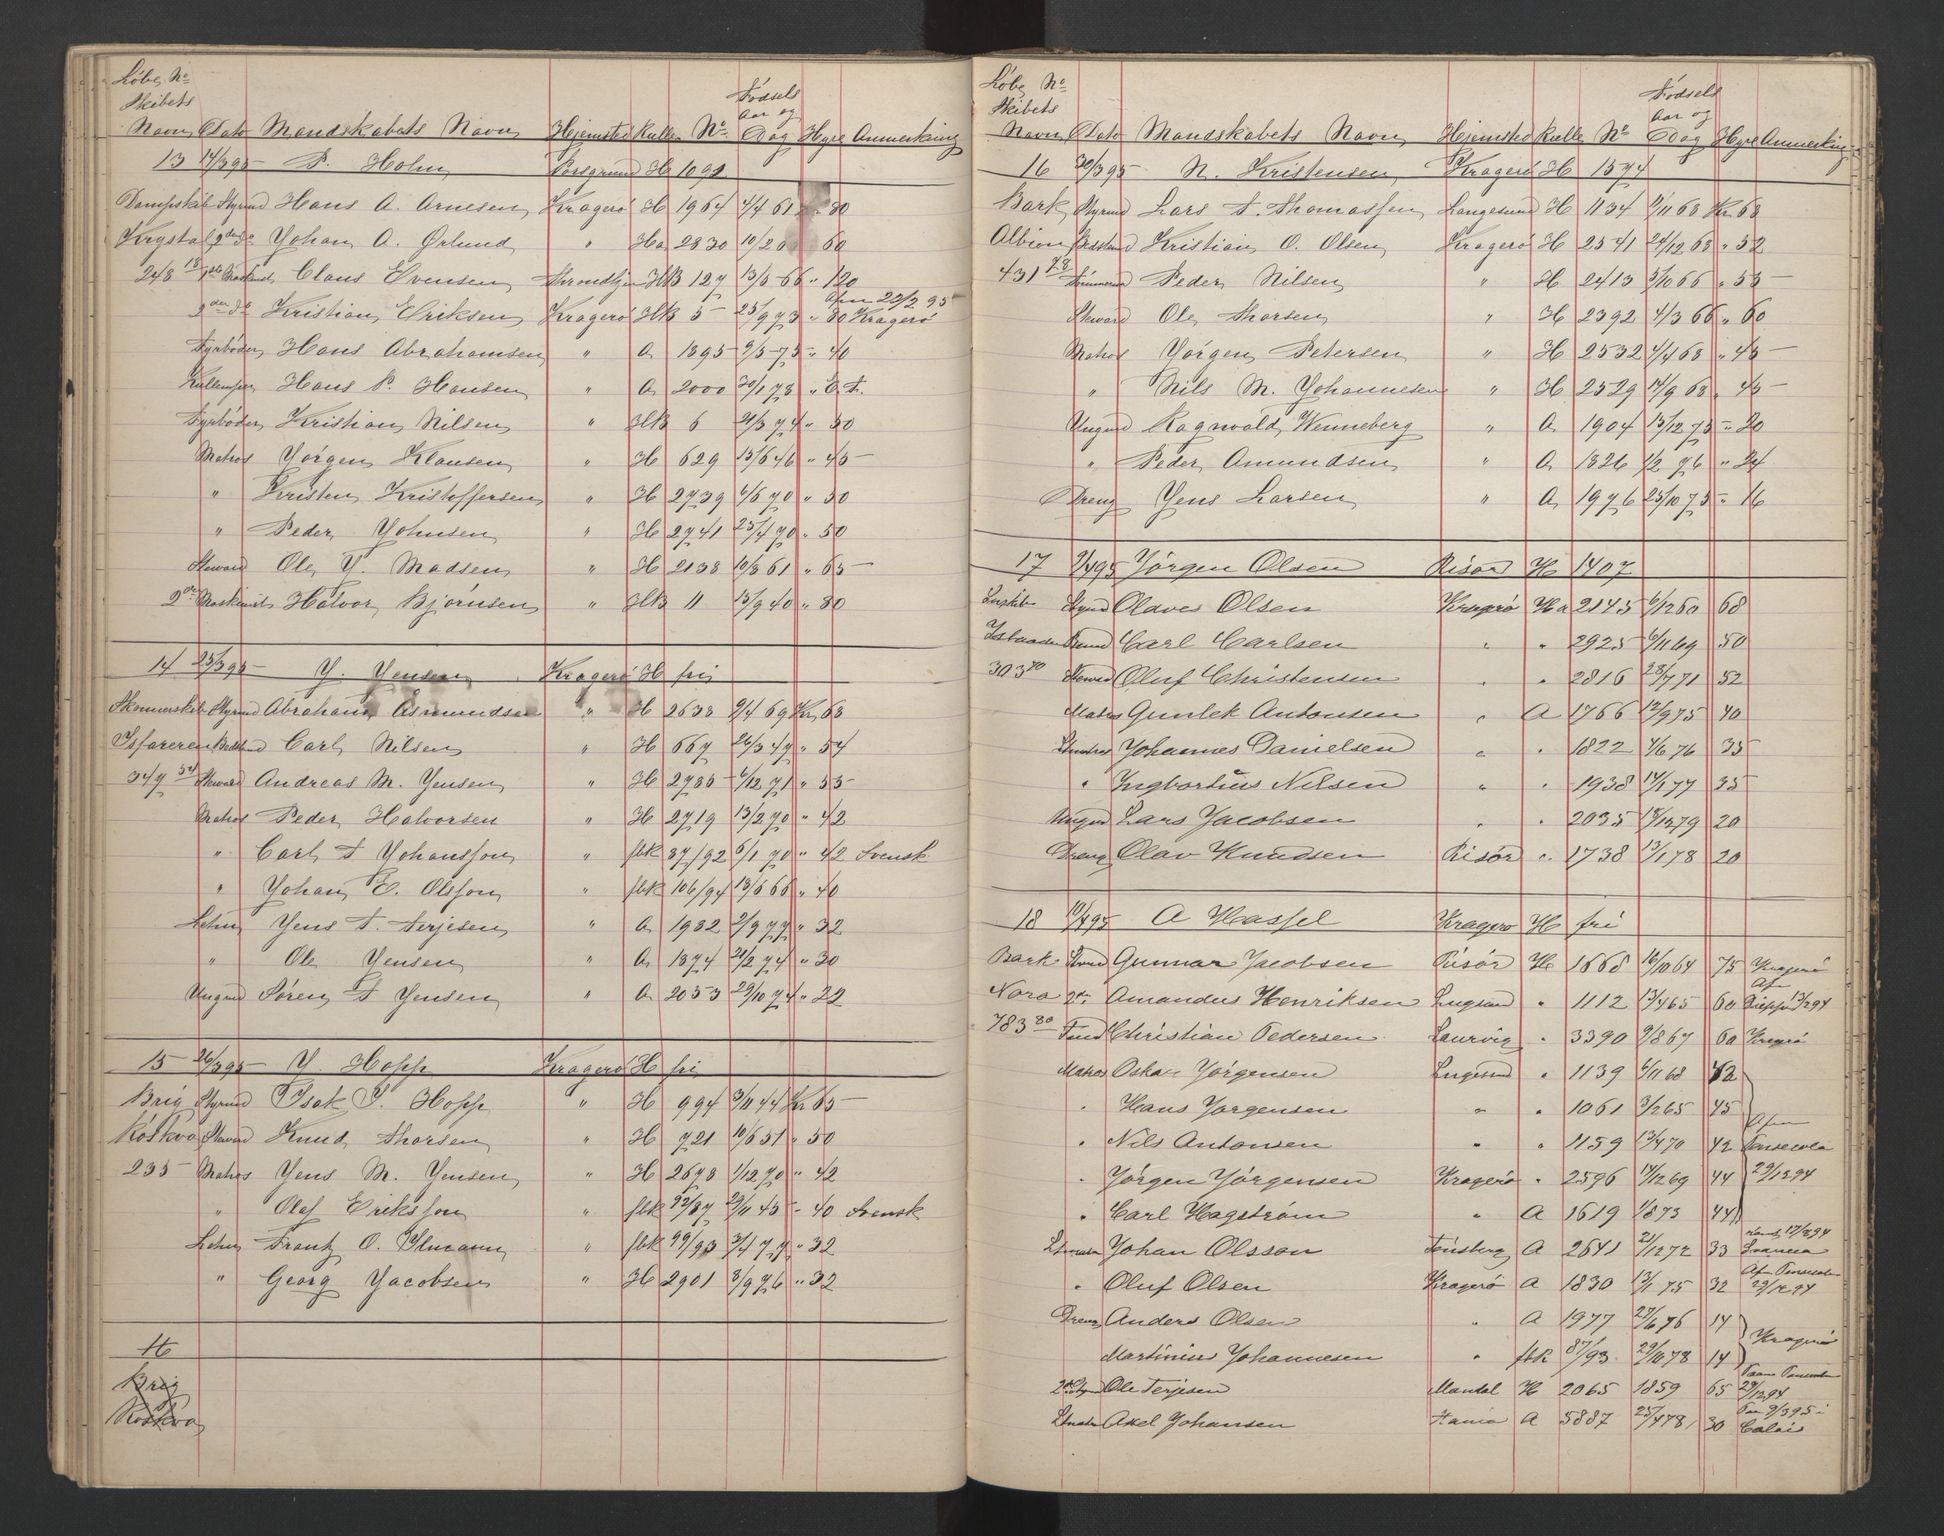 Løbe No
Skibets Navn Dato Mandskabets Navn Hjemsted Rulle No Fødsels Aar og Dag Hyre Anmerkning
13 14/3 95 P. Holm Porsgrund H 1092
Dampskib Styrmd Hans A. Arnesen Kragerø H 1964 4/4 61 80
Krystal 2den do Johan A. Ørlund " Ha 2830 10/2 60
248 18 1ste Maskinist Claus Evensen Throndhjem HB 127 13/5 66 " 120
2den do Kristian Eriksen Kragerø HB 5 25/9 73 " 80 Afm 22/2 95 Kragerø
Fyrbøder Hans Abrahamsen " A 1895 9/5 75 " 40
Kullemper Hans P. Hansen " A 2000 30/1 78 "
Fyrbøder Kristian Nilsen " HB 6 21/3 74 " 50
Matros Jørgen Klausen " H 629 13/6 46 " 45
" Kristen Kristoffersen " H 2739 6/6 70 " 50
" Peder Johnsen " H 2741 25/4 70 " 50
Steward Ole J. Madsen " H 2138 10/8 61 " 65
2den Maskinist Halvor Bjørnsen " HB 11 15/9 40 " 80
14 25/3 95 J. Jensen Kragerø H fri
Skonnerskib Styrmd Abraham Åsmundsen " H 2638 9/4 69 Kr 68
Isfareren Bedstmd Carl Nilsen " H 667 26/3 47 " 54
347 54 Steward Andreas M. Jensen " H 2785 6/12 71 " 55
Matros Peder Halvorsen " H 2719 13/2 70 " 42
" Carl A Johansson " fbk 37/92 6/1 70 " 42 Svensk
" Johan E. Olsson " fbk 106/94 18/6 66 " 40
Letm Jens A. Terjesen " A 1982 2/9 77 " 32
" Ole Jensen " A 1874 21/2 74 " 30
Ungmd Søren A Jensen " A 2053 29/10 74 " 22
15 26/3 95 J. Hopp Kragerø H fri
Brig Styrmd Isak I. Hopp " H 994 3/11 44 Kr 65
Roskva Steward Knud Thorsen " H 721 10/6 51 " 50
235 Matros Jens M. Jensen " H 2678 1/12 70 " 42
" Olaf Eriksson " fbk 92/87 29/11 45 " 40 Svensk
Letm Frantz O. Ilmann " fbk 99/93 3/4 77 " 32
" Georg Jacobsen " H 2901 8/9 76 " 32
16
Brig
Roskva
Løbe No
Skibets Navn Dato Mandskabets Navn Hjemsted Rulle No Fødsels Aar og Dag Hyre Anmerkning
16 30/3 95 N. Kristensen Kragerø H 1574
Bark Styrmd Lars A. Thomassen Langesund H 1134 9/11 68 Kr 68
Albion Bedstmd Kristian O. Olsen Kragerø H 2541 24/12 68 " 52
431 78 Tømmermd Peder Nilsen " H 2413 5/10 66 " 55
Steward Ole Thorsen " H 2392 4/3 66 " 60
Matros Jørgen Petersen " H 2532 4/4 68 " 45
" Nils M. Johannesen " H 2529 14/9 68 " 45
Ungmd Ragnvald Wenneberg " A 1904 15/12 75 " 20
" Peder Amundsen " A 1826 1/2 76 " 24
Dreng Jens Larsen " A 1976 25/10 75 " 16
17 9/4 95 Jørgen Olsen Risør H 1407
Lugskib Stymd Olaves Olsen Kragerø Ha 2145 6/12 60 68
Isbaaden Tømd Carl Carlsen " " 2925 6/11 69 50
303 70 Steward Oluf Christensen " " 2816 28/7 71 52
Matros Guntek Antonsen " A 1766 12/9 75 40
Ltmatros Johannes Danielsen " " 1822 4/6 76 35
" Ingbortius Nilsen " " 1938 14/1 77 35
Ungmd Lars Jacobsen " " 2035 18/12 79 20
Dreng Olav Knudsen Risør " 1738 13/1 78 20
18 10/4 95 A Hassel Kragerø H fri
Bark Stmd Gunnar Jacobsen Risør H 1668 16/10 64 75 Kragerø
Nora 2de Amandus Henriksen Lngsund " 1112 13/4 65 60 Afm Dieppe 13/2 94
783 80 Tmd Christian Pedersen Laurvig " 3390 9/8 67 60 Kragerø
Matros Oskar Jørgensen Lngesund " 1139 6/11 68 42
" Hans Jørgensen " " 1061 3/2 65 45
" Nils Antonsen " " 1159 13/4 70 42 Afm Pensecola
" Jørgen Jørgensen Kragerø " 2596 14/12 69 44 29/12 94
" Carl Hagstrøm " A 1619 1/8 73 44
Ltmatr Johan Olsson Tønsberg A 2641 21/12 72 33 17/8 94
" Oluf Olsen Kragerø A 1830 13/1 75 32 Afm Pensecola 29/12 94
Dreng Anders Olsen " A 1977 27/6 76 14
Martinius Johannesen " fbk 87/93 29/11 78 14 Kragerø
2de Stymd Ole Terjesen Mandal H 2065 1859 65 Paam Pensecola 29/12 94
Ltmatr Axel Johansen A 5887 25/4 78 30 Paa 9/3 95 i Calais